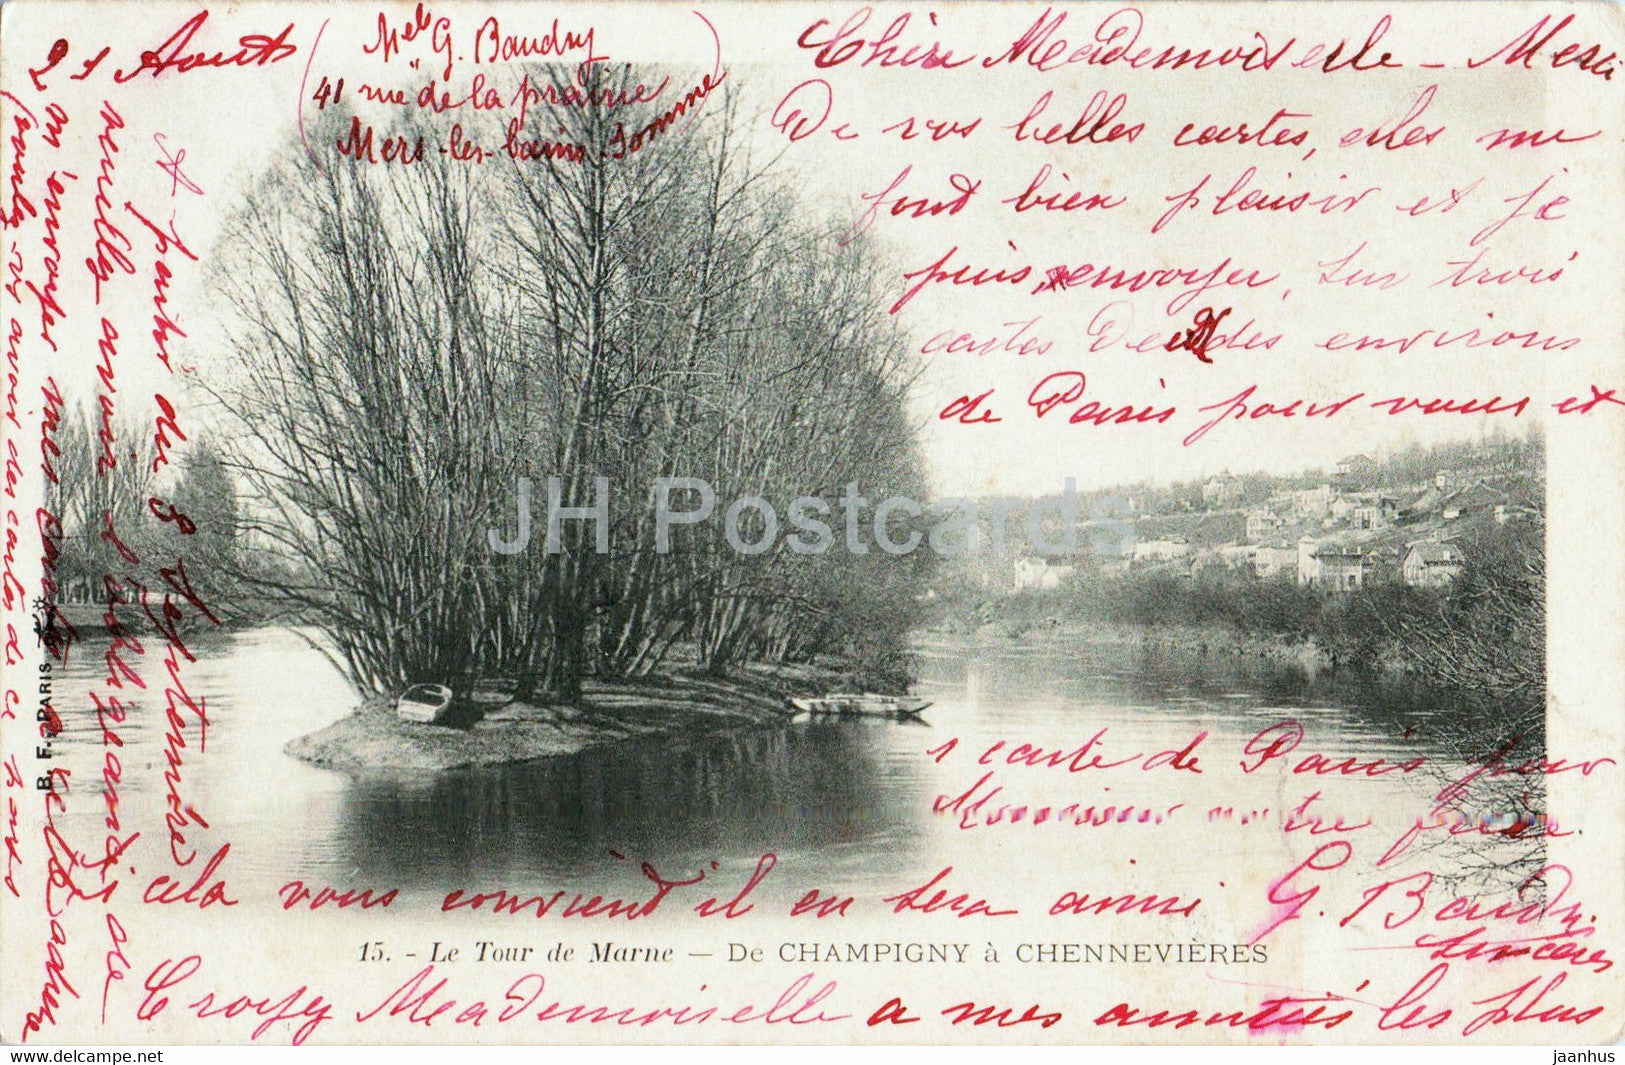 21 Aout
Melle G. Baudry
41 rue de la prairie
Mers-les-bains. Somme
Chère Mademoiselle - Merci
De vos belles cartes, elles me
font bien plaisir et je
puis envoyer, sur trois
cartes De des environs
de Paris pour vous et
1 carte de Paris pour
Monsieur votre frère
cela vous convient il en sera ainsi G. Baudry
Croyez Mademoiselle a mes amitiés les plus
sincères
A partir du 8 Septembre
veuillez avoir l'obligeance de
m'envoyer mes cartes a cette adresse
voulez-vs avoir des cartes de ce pays
15. - Le Tour de Marne — De CHAMPIGNY à CHENNEVIÈRES
B. F. PARIS
JH Postcards
jaanhus